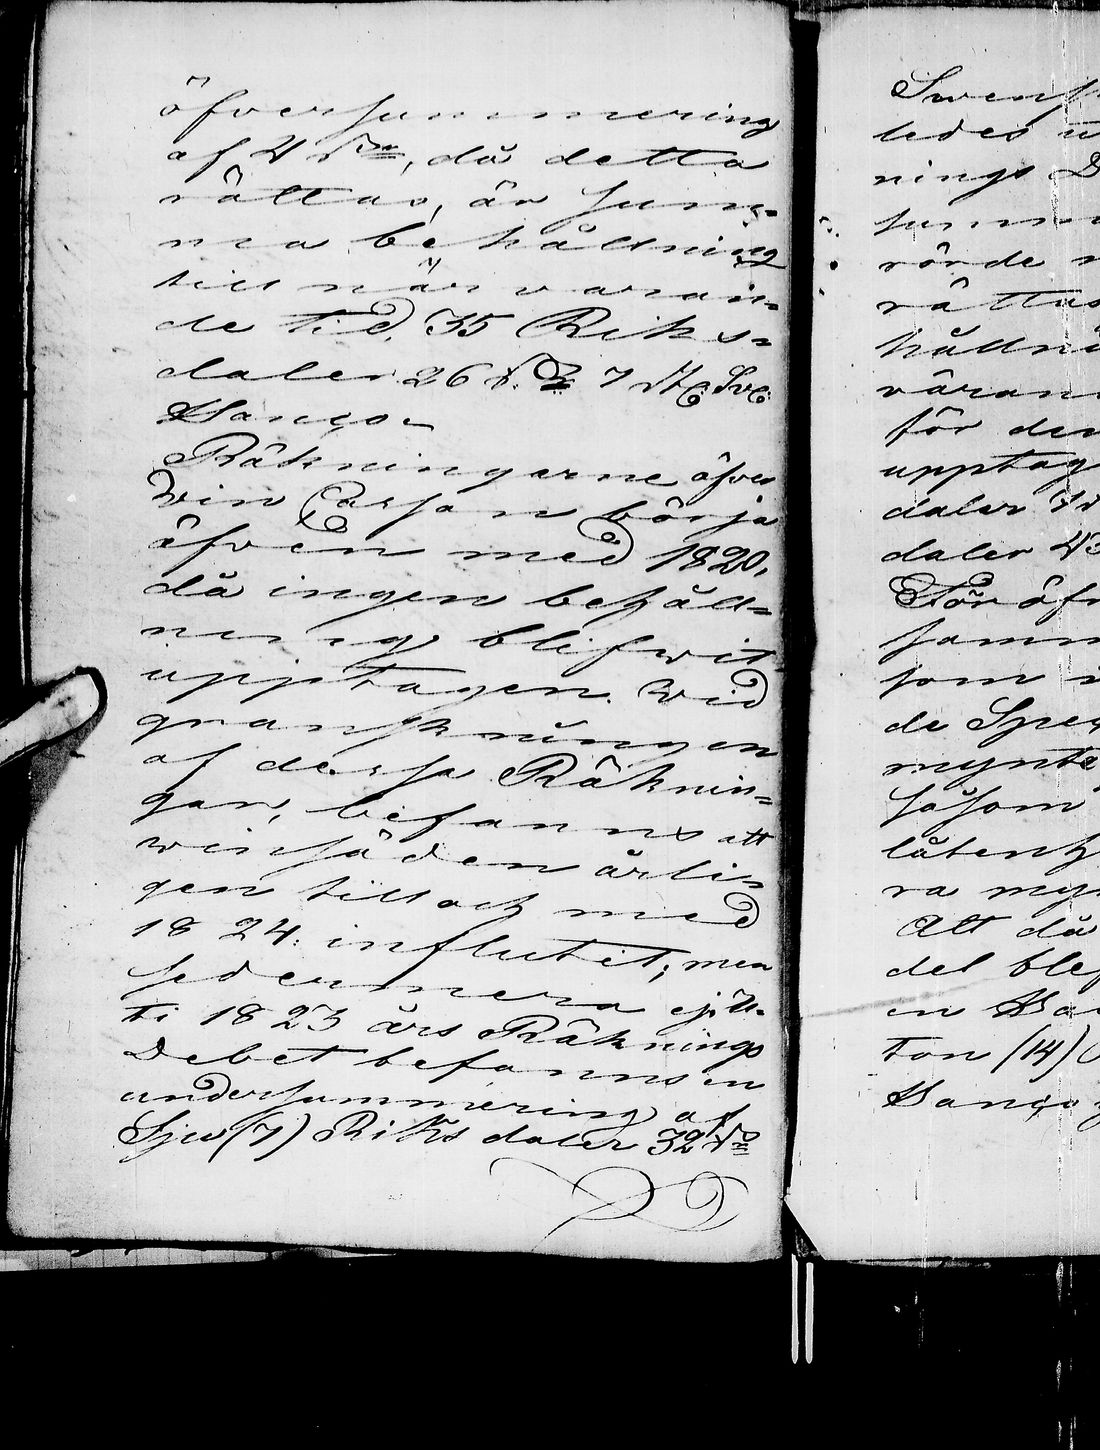 öfversummering
af 4 , då detta
rättas, är sum-
ma behållning
till när varan-
de tid, 35 Riks-
daler 26 7 Svc.
Banco.
Räkningarne öfver
Win Cassan börja
äfven med 1820,
då ingen behåll-
ning blifwit
upptagen. Wid
gransk ningen
af dessa Räknin-
gar, befanns att
winsäden årli-
gen till och med
1824: influtit; men
sedermera ej. Ut-
ti 1823 års Räknings
Debet befanns en
undersummering af
Sju (7) Riks daler 32
Swensk
ledes u
nings D
summ
rörde n
rättas
hålln
väran
för den
upptag
daler
daler 43
För öf
samm
som
de Spec
mynte
såsom
låtent
ra myn
Att då
del blef
en Ban
ton (14)
Banco